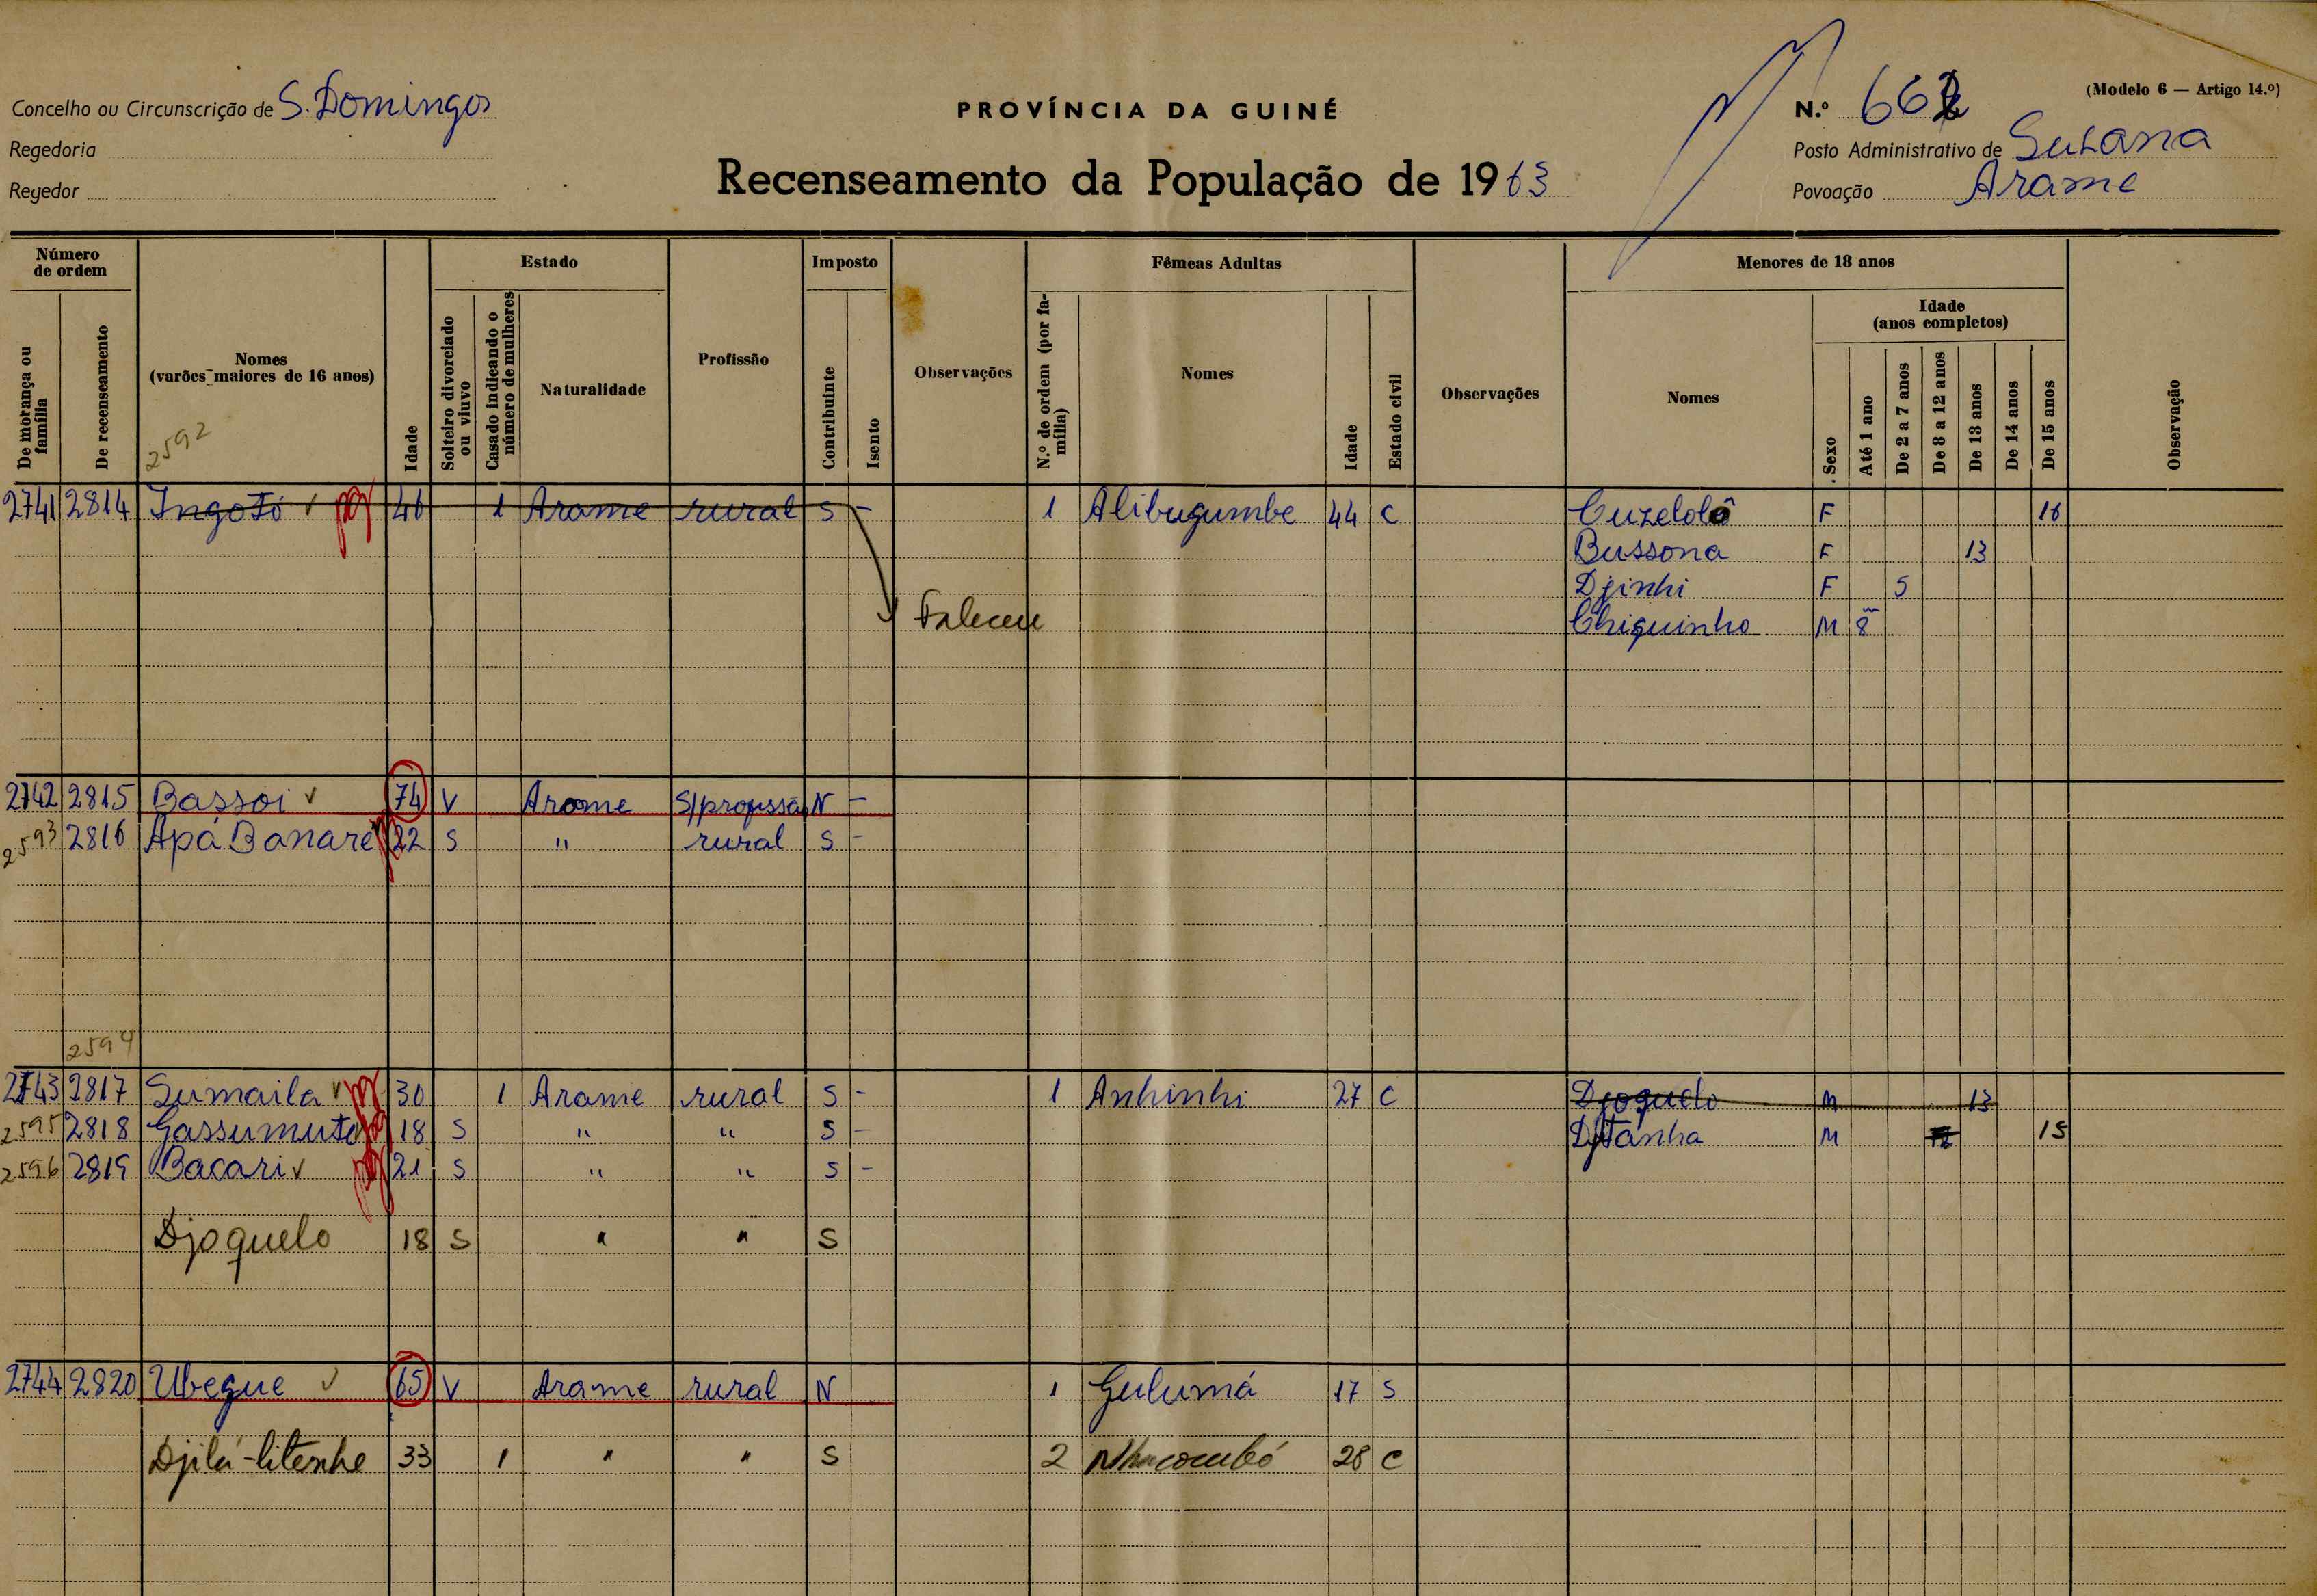 Concelho ou Circunscrição de S. Domingos
PROVÍNCIA DA GUINÉ
N.º 662
(Modelo 6 — Artigo 14.º)
Regedoria
Posto Administrativo de Susana
Regedor
Recenseamento da População de 1963
Povoação Arame
Número de ordem
Estado
Imposto
Fêmeas Adultas
Menores de 18 anos
De morança ou família
De recenseamento
Nomes (varões maiores de 16 anos)
2592
Idade
Solteiro divorciado ou viuvo
Casado indicando o número de mulheres
Naturalidade
Profissão
Contribuinte
Isento
Observações
N.º de ordem (por família)
Nomes
Idade
Estado civil
Observações
Nomes
Sexo
Idade (anos completos)
Até 1 ano
De 2 a 7 anos
De 8 a 12 anos
De 13 anos
De 14 anos
De 15 anos
Observação
2741 2814 Ingotó 46 1 Arame rural S - 1 Alibugumbe 44 C Cuzelolô F 16
Bussona F 13
Djinhi F 5
Faleceu Chiquinho M 8 m
2742 2815 Bassoi 74 V Arame S/profissão N -
2593 2816 Apá Banaré 22 S " rural S -
2594
2743 2817 Sumaila 30 1 Arame rural S - 1 Anhinhi 27 C Djoquelo M 13
2595 2818 Gassumuto 18 S " " S - Djtanha M 15
2596 2819 Bacari 21 S " " S -
Djoquelo 18 S " " S
2744 2820 Ubegue 65 V Arame rural N 1 Gulumá 17 S
Djilá-litenhe 33 1 " " S 2 Nhacombó 28 C